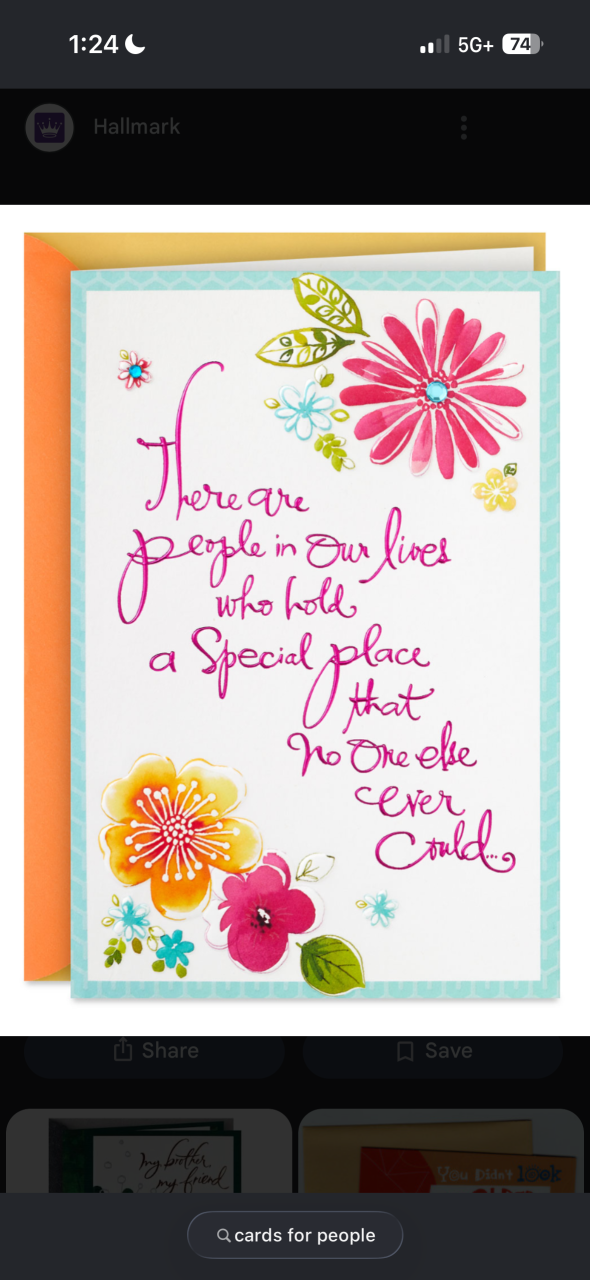 1:24
5G+ 74
Hallmark
There are
people in Our lives
who hold
a Special place
that
No One else
ever
Could...
Share Save
my brother,
my friend
You Didn't look
cards for people